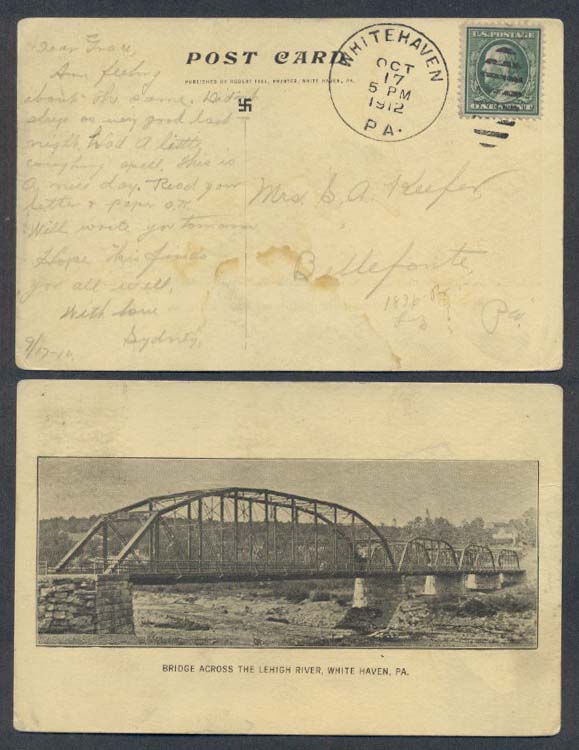 POST CARD
PUBLISHED BY ROBERT FEEL, PRINTER, WHITE HAVEN, PA.
WHITEHAVEN
OCT
17
5 PM
1912
PA.
U.S. POSTAGE
ONE CENT
Dear Grace,
Am feeling
about the same. Didn't
sleep as very good last
night. Had a little
coughing spell. This is
a nice day. Read your
letter & paper O.K.
Will write you tomorrow
Hope this finds
you all well,
With love
Sydney,
Mrs. S. A. Keefer,
Bellefonte,
Pa.
BRIDGE ACROSS THE LEHIGH RIVER, WHITE HAVEN, PA.